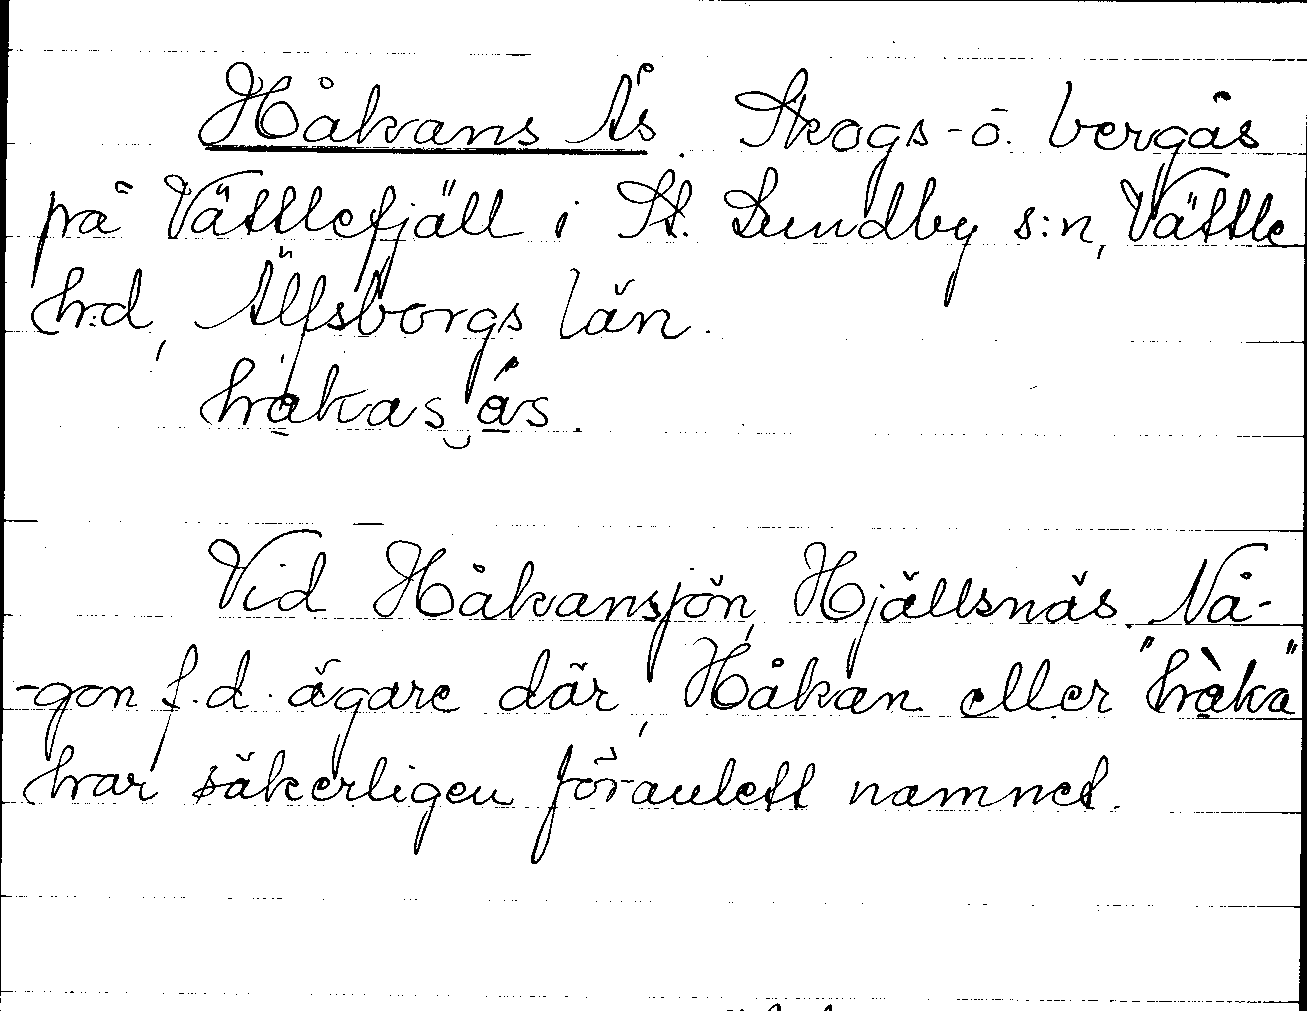 Håkans Ås. Skogs- o. bergås
på Vättlefjäll i St. Lundby s:n, Vättle
h:d, Älfsborgs län.
hàkas ás.
Vid Håkansjön, Hjällsnäs. Nå-
-gon f.d. ägare där, Håkan eller "hàka"
har säkerligen föranlett namnet.